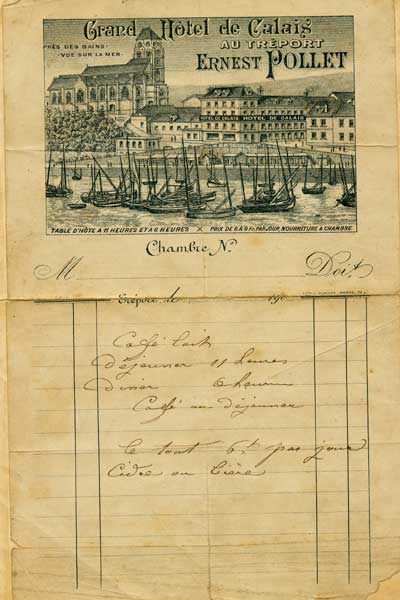 Grand Hôtel de Calais
AU TRÉPORT
ERNEST POLLET
PRÈS DES BAINS
VUE SUR LA MER
HOTEL DE CALAIS HOTEL DE CALAIS
TABLE D'HÔTE A 11 HEURES ET A 6 HEURES × PRIX DE 6 A 9 Fr. PAR JOUR, NOURRITURE & CHAMBRE
Chambre N.
M Doit
Tréport, le 190
Café lait
Déjeuner 11 heures
Diner 6 heures
Café au déjeuner
le tout 6f par jour
Cidre ou bière